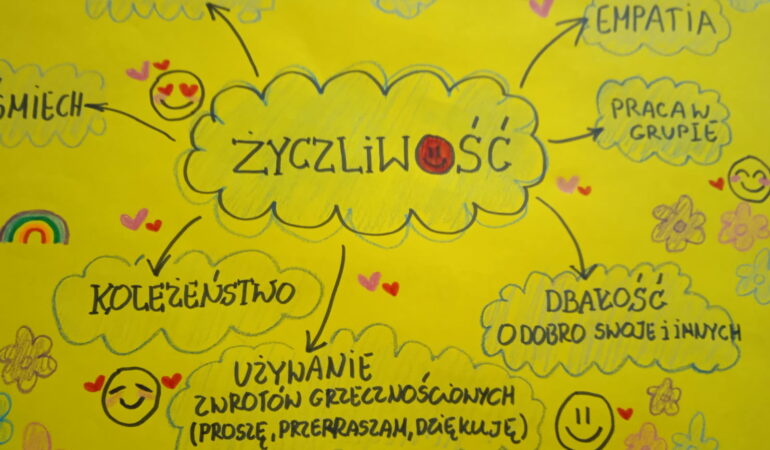 EMPATIA
ŚMIECH
PRACA W
GRUPIE
ŻYCZLIWOŚĆ
KOLEŻEŃSTWO
DBAŁOŚĆ
O DOBRO SWOJE i iNNYCH
UŻYWANIE
ZWROTÓW GRZECZNOŚCIOWYCH
(PROSZĘ, PRZEPRASZAM, DZIĘKUJĘ)